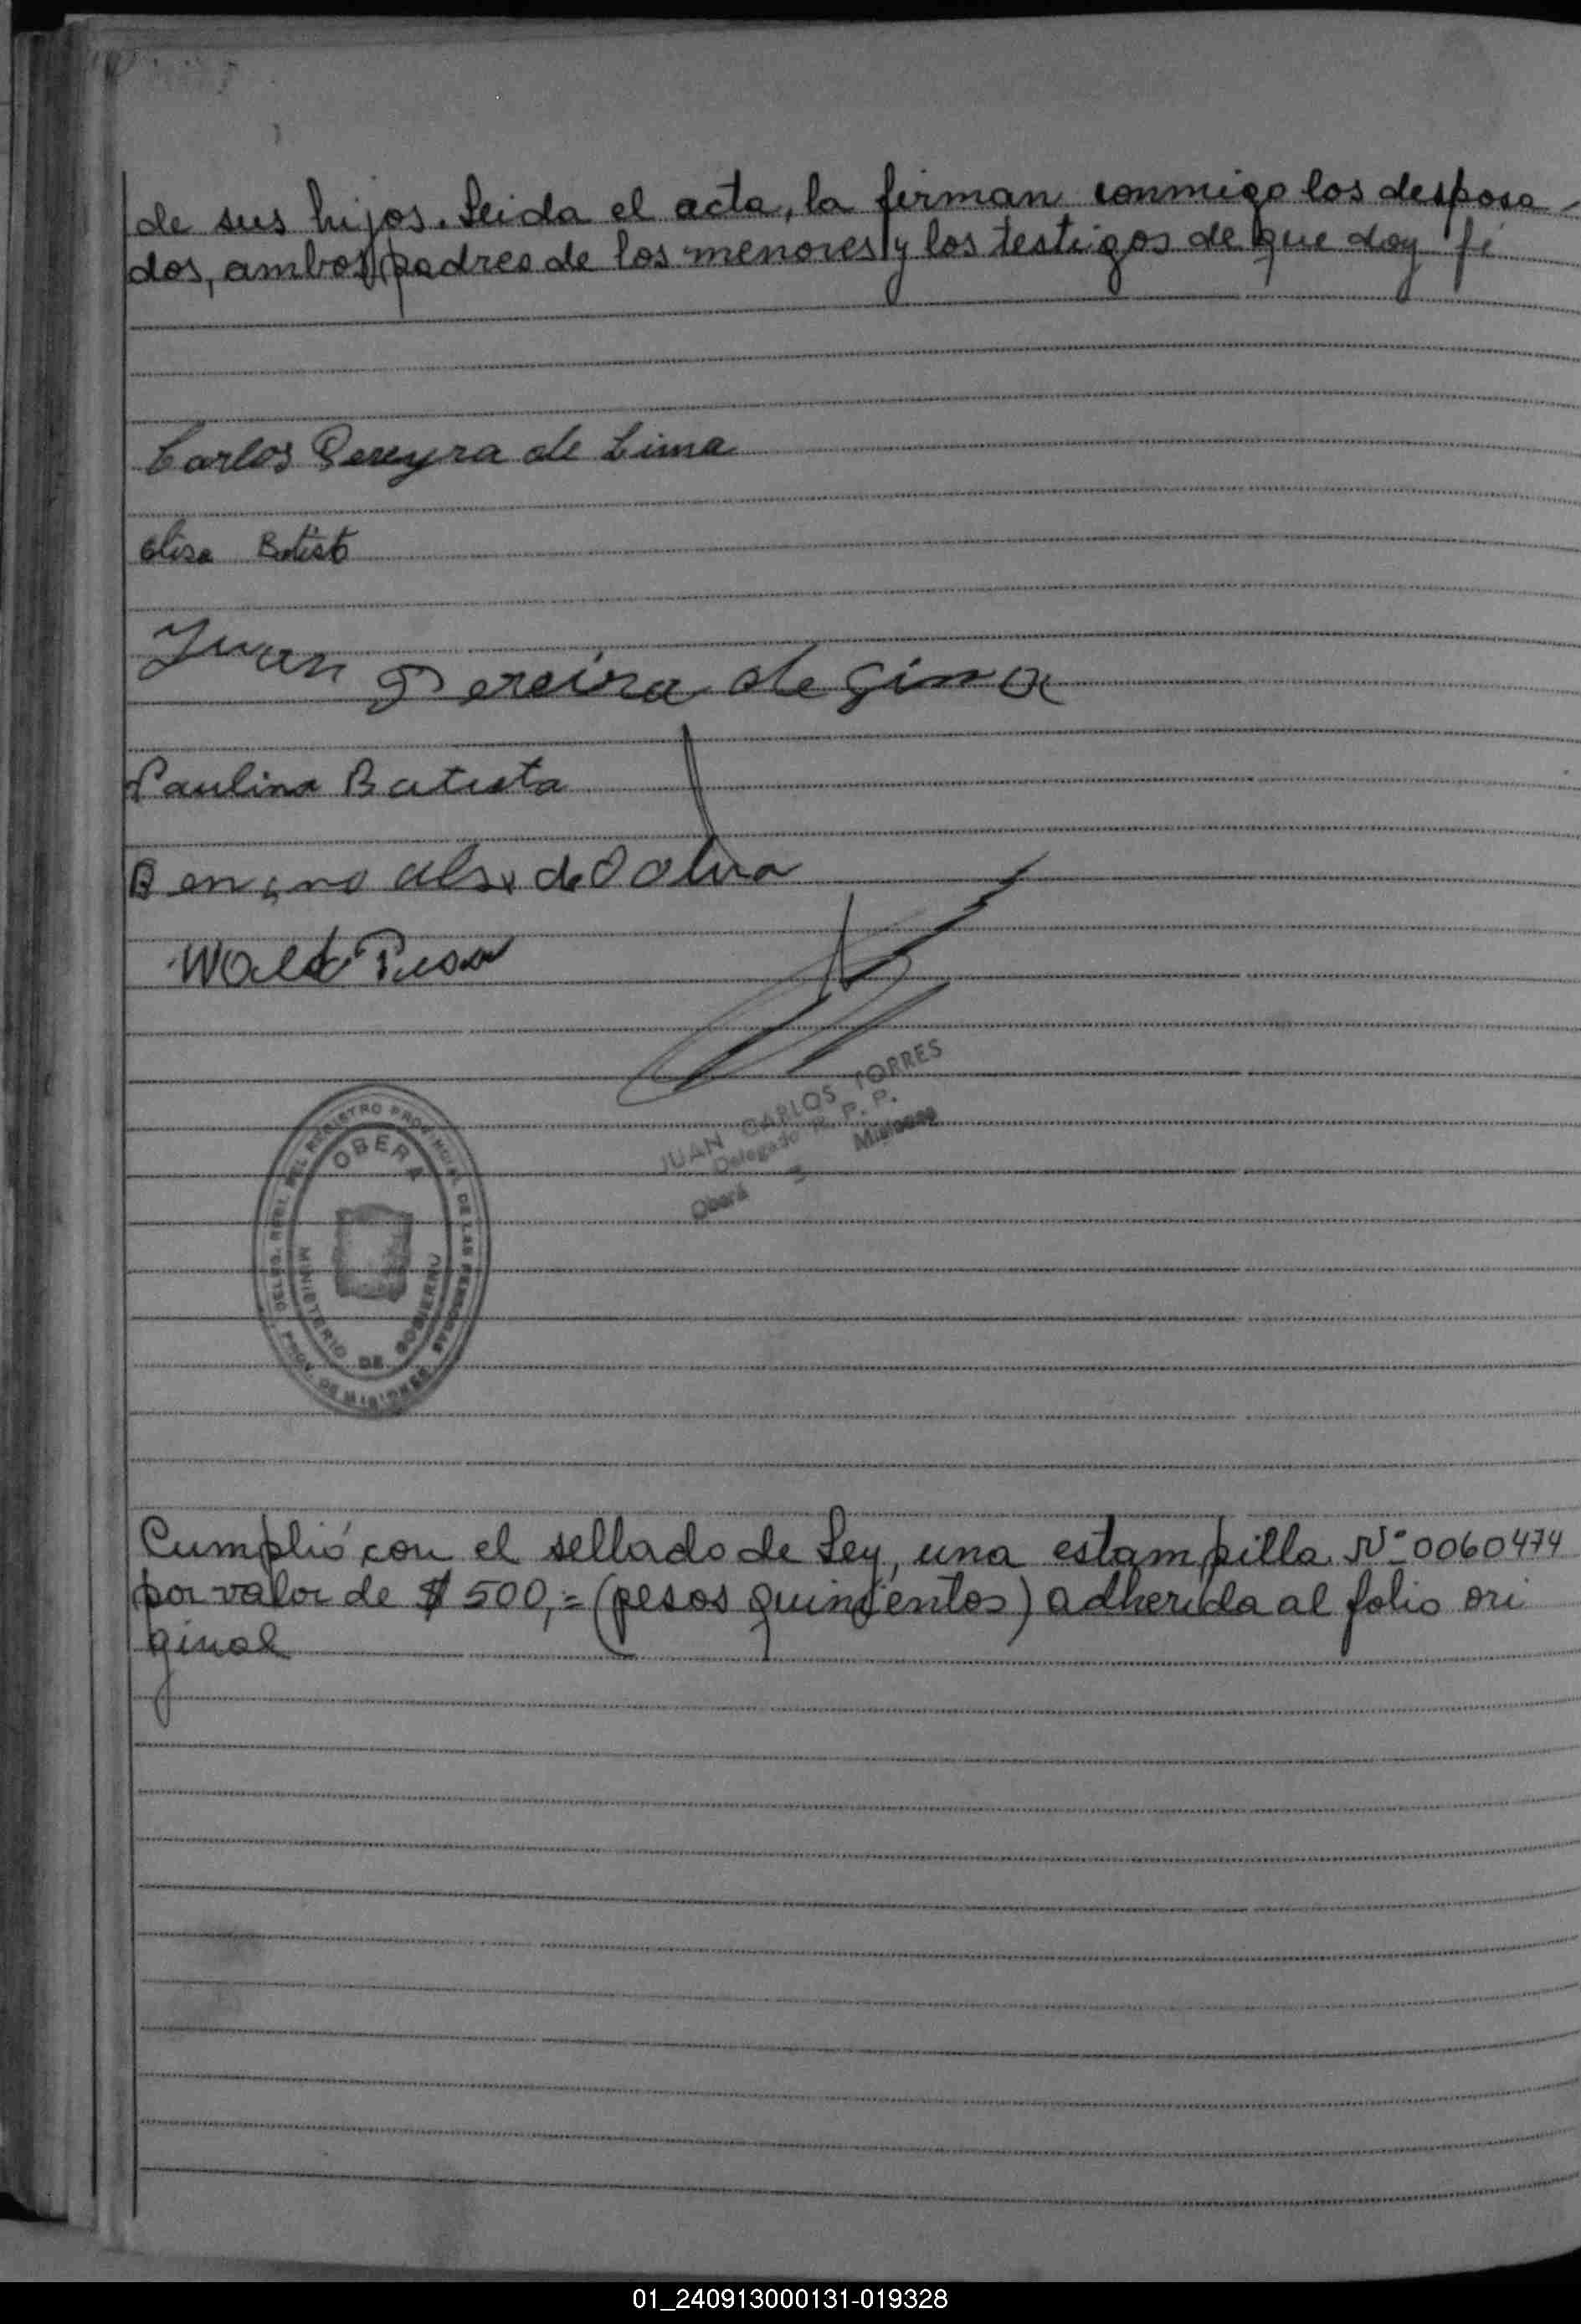 de sus hijos. Leida el acta, la firman conmigo los desposa-
dos, ambos padres de los menores y los testigos de que doy fé
Carlos Pereyra de Lima
elisa Batista
Juan Pereira de Lima
Paulina Batista
de
Waldo
JUAN CARLOS TORRES
Delegado R. P. P.
Oberá Misiones
DEL REGISTRO PROVINCIAL DE LAS PERSONAS
OBERA
MINISTERIO DE GOBIERNO
PROV. DE MISIONES
Cumplió con el sellado de Ley, una estampilla Nº 0060474
por valor de $ 500,= (pesos quinientos) adherida al folio ori
ginal
01_240913000131-019328